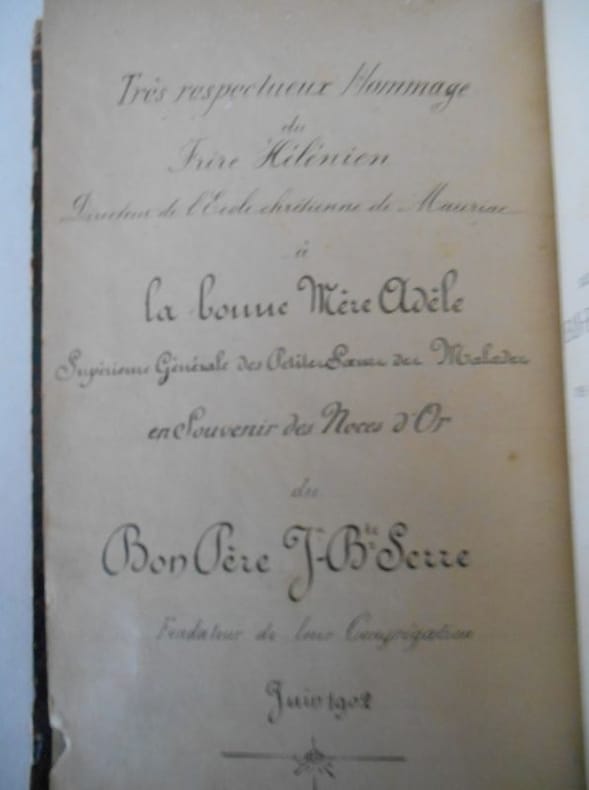 Très respectueux Hommage
du
Frère Hélénien
Directeur de l'Ecole chrétienne de Mauriac
à
la bonne Mère Adèle
Supérieure Générale des Petites Sœurs des Malades
en Souvenir des Noces d'Or
du
Bon Père J-Bte Serre
Fondateur de leur Congrégation
Juin 1902